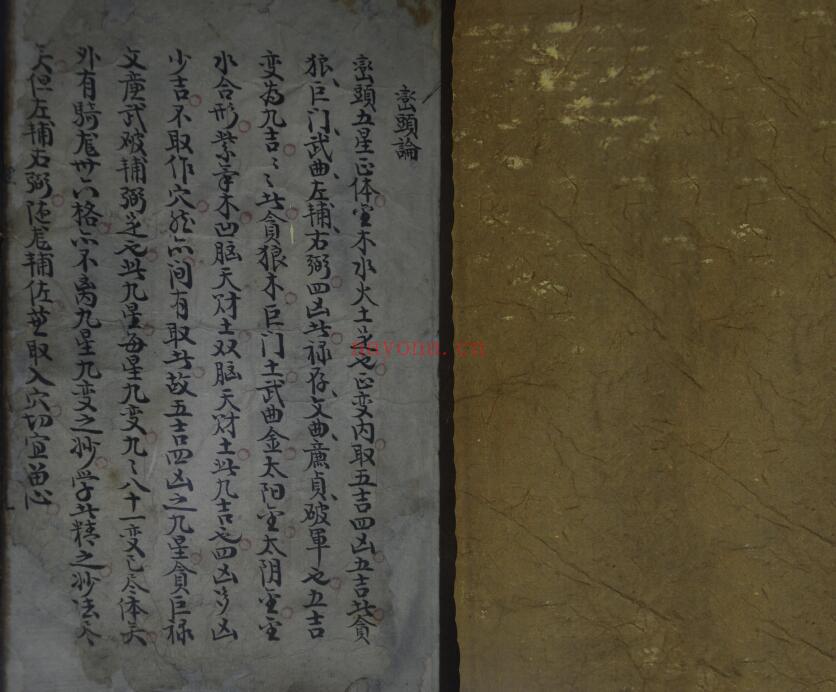 峦頭論
峦頭五星正体金木水火土是也正变内取五吉四凶五吉者貪
狼巨门武曲左辅右弼四凶者禄存文曲廉貞破軍也五吉
变为九吉〻者貪狼木巨门土武曲金太阳金太阴金金
水合形紫氣木凹脑天财土双脑天财土此九吉也四凶多凶
少吉不取作穴然亦间有取者故五吉四凶之九星貪巨禄
文廉武破辅弼是也此九星每星九变九〻八十一变已尽体矣
外有騎龙卅六格亦不离九星九变之妙学者精之妙法尽
矣但左辅右弼随龙辅佐兼取入穴切宜留心
nayona.cn